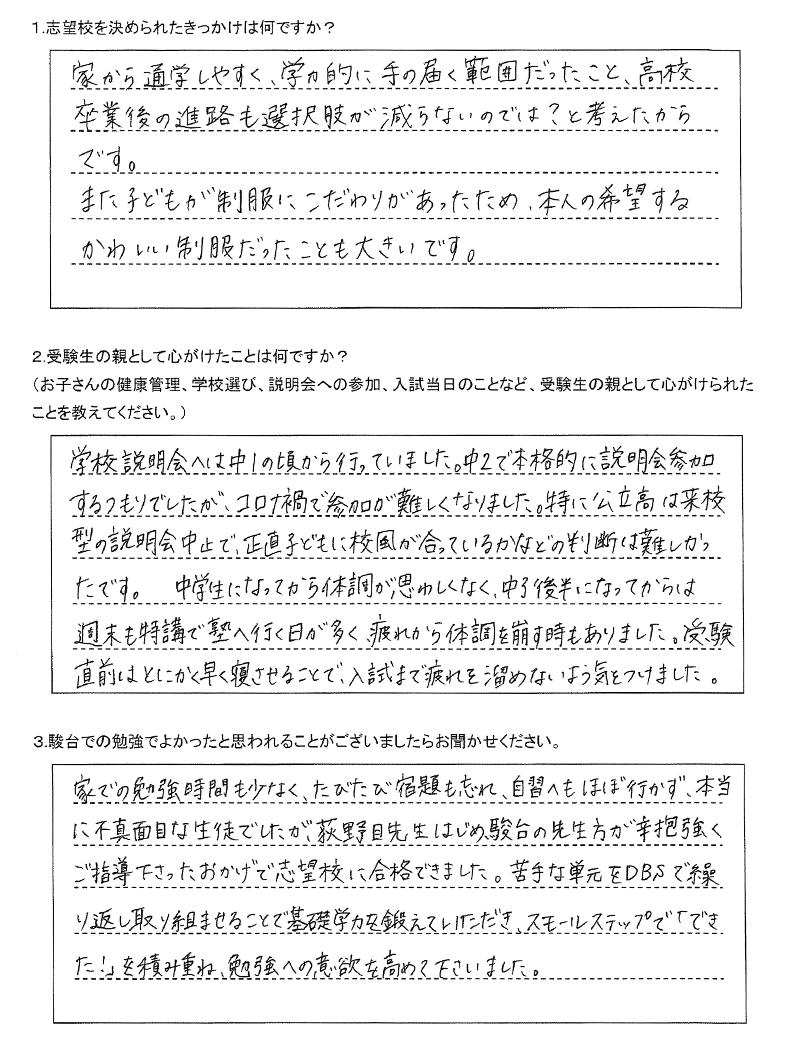 1.志望校を決められたきっかけは何ですか？
家から通学しやすく、学力的に手の届く範囲だったこと、高校
卒業後の進路も選択肢が減らないのでは？と考えたから
です。
また子どもが制服にこだわりがあったため、本人の希望する
かわいい制服だったことも大きいです。
２.受験生の親として心がけたことは何ですか？
（お子さんの健康管理、学校選び、説明会への参加、入試当日のことなど、受験生の親として心がけられた
ことを教えてください。）
学校説明会へは中1の頃から行っていました。中2で本格的に説明会参加
するつもりでしたが、コロナ禍で参加が難しくなりました。特に公立高は来校
型の説明会中止で、正直子どもに校風が合っているかなどの判断は難しかっ
たです。　中学生になってから体調が思わしくなく、中3後半になってからは
週末も特講で塾へ行く日が多く、疲れから体調を崩す時もありました。受験
直前はとにかく早く寝させることで、入試まで疲れを溜めないよう気をつけました。
３.駿台での勉強でよかったと思われることがございましたらお聞かせください。
家での勉強時間も少なく、たびたび宿題も忘れ、自習へもほぼ行かず、本当
に不真面目な生徒でしたが、荻野目先生はじめ、駿台の先生方が辛抱強く
ご指導下さったおかげで志望校に合格できました。苦手な単元をDBSで繰
り返し取り組ませることで基礎学力を鍛えていただき、スモールステップで「でき
た！」を積み重ね、勉強への意欲を高めて下さいました。